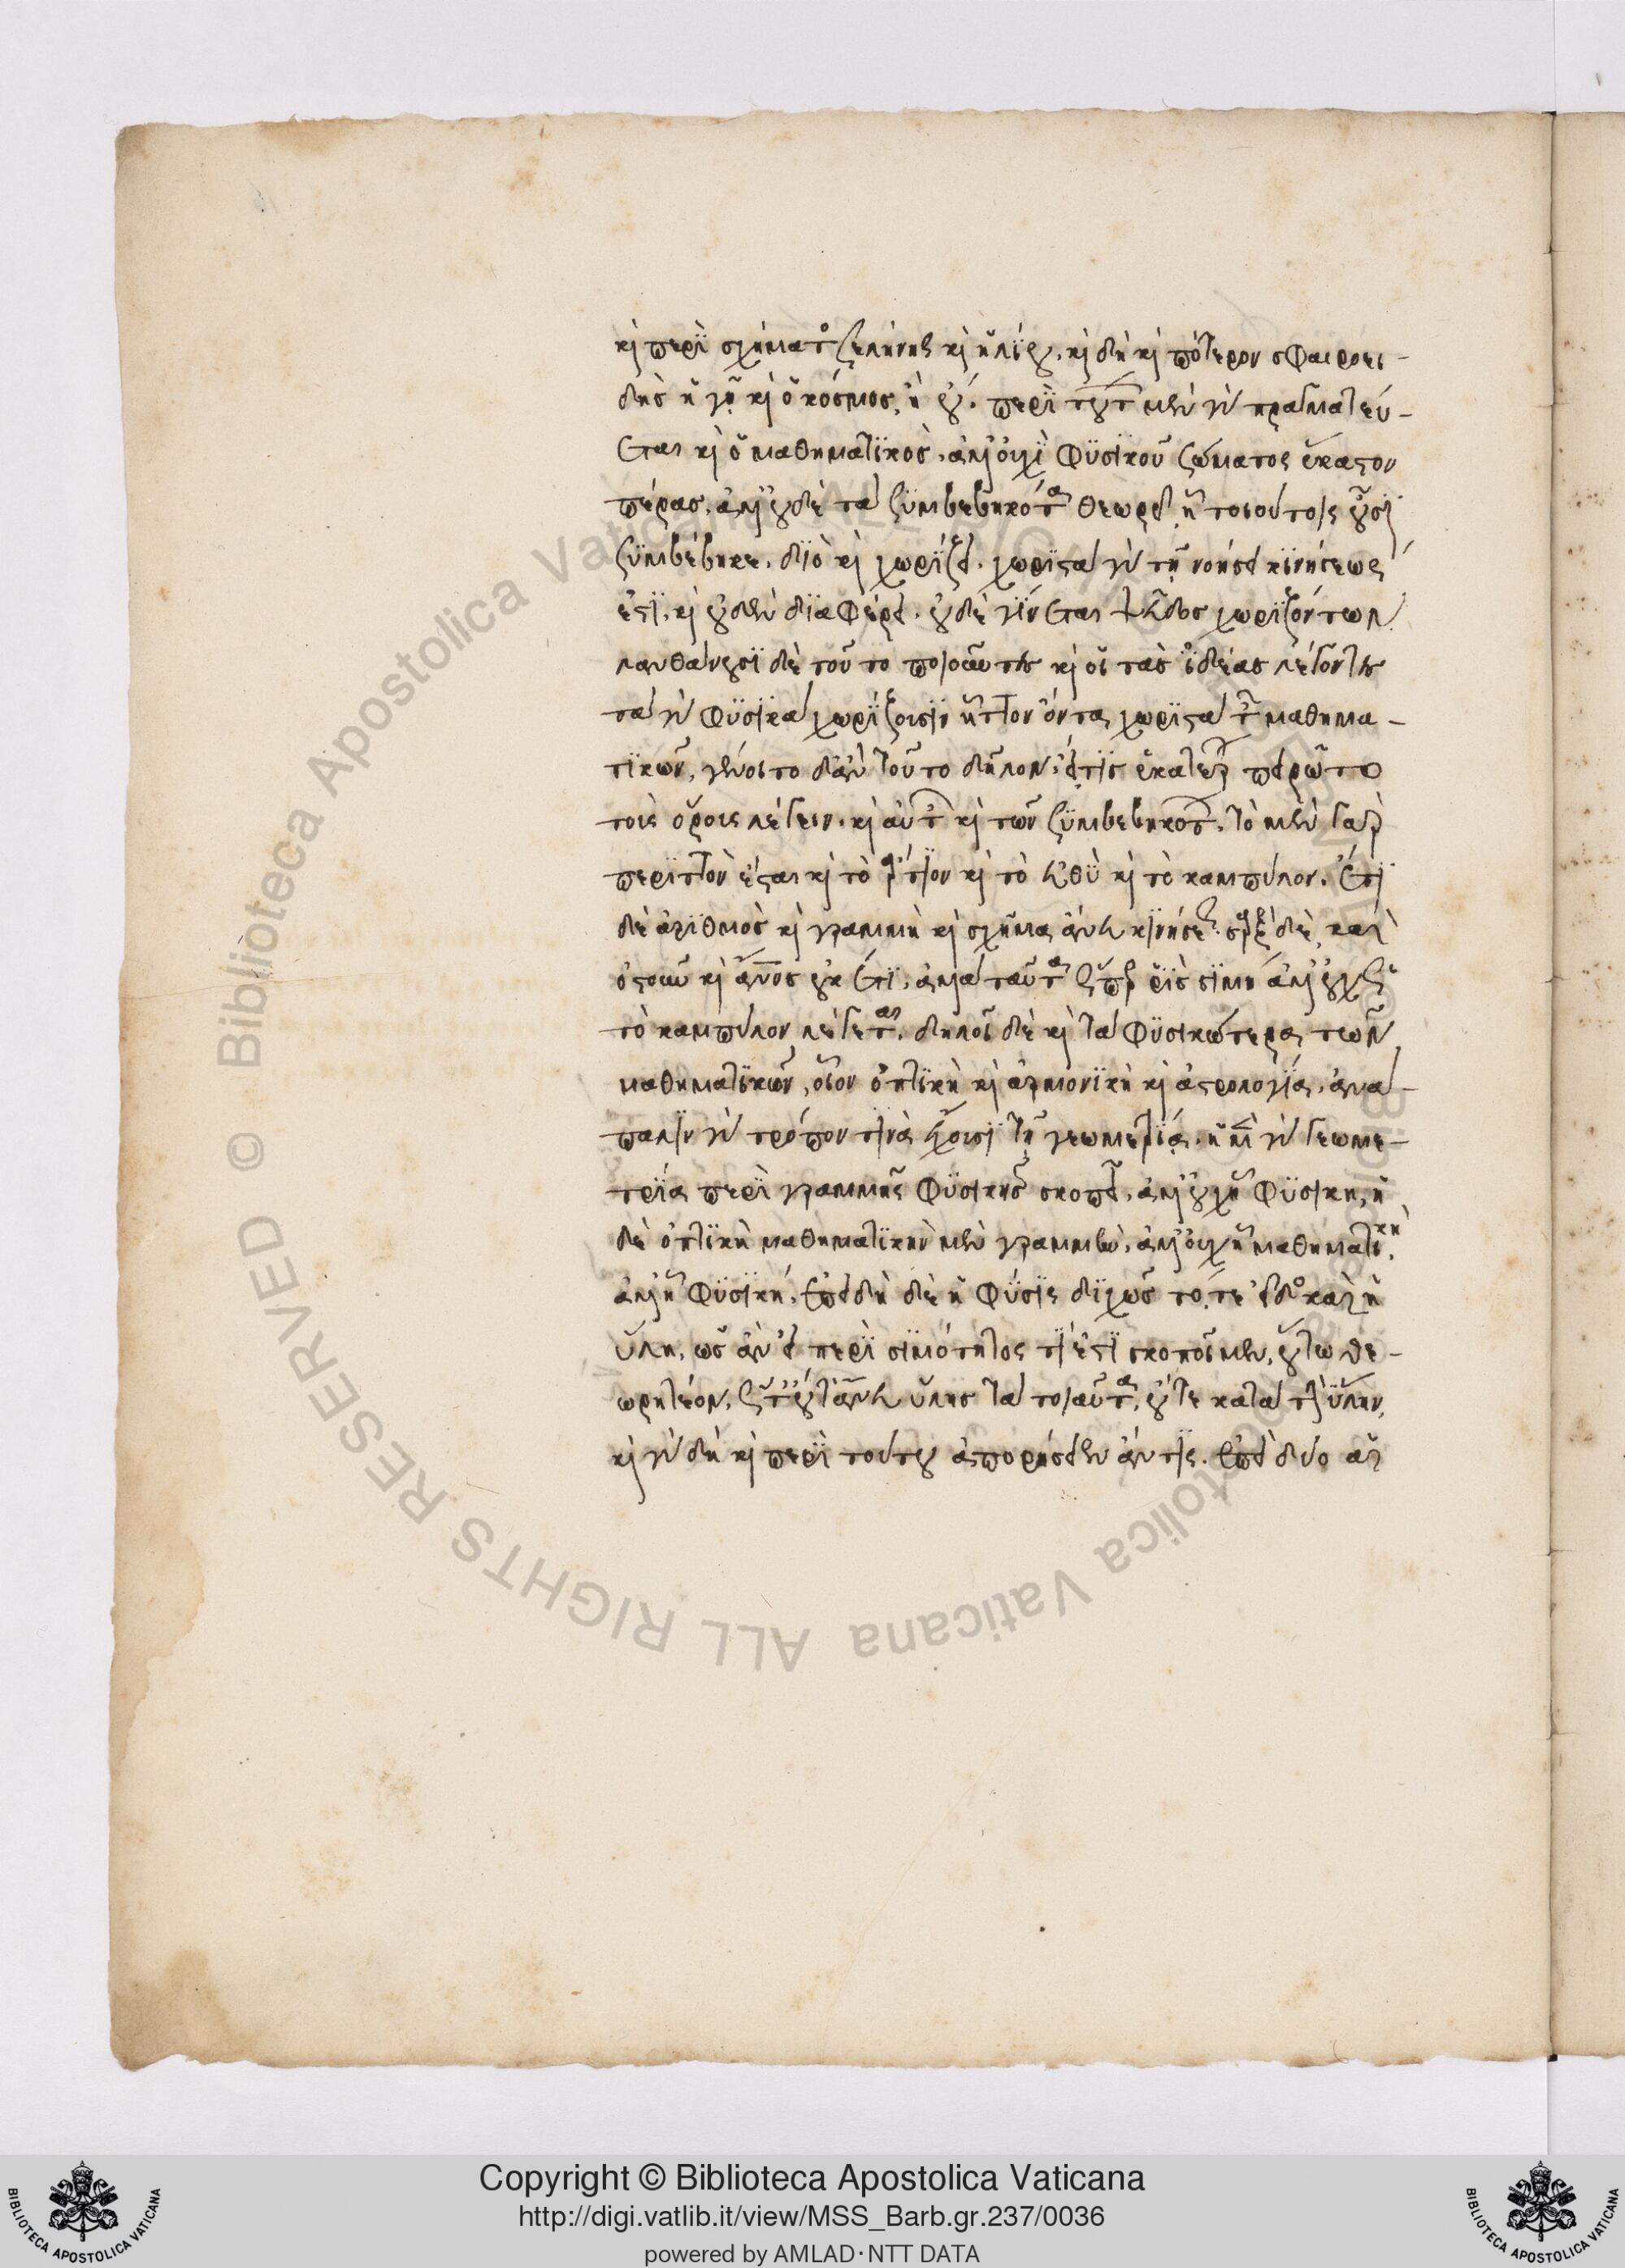 καὶ περὶ σχήματος σελήνης καὶ ἡλίου, καὶ δὴ καὶ πότερον σφαιροει-
δὴς ἡ γῆ καὶ ὁ κόσμος, ἢ οὔ. περὶ τούτων μὲν οὖν πραγματεύ-
εται καὶ ὁ μαθηματικὸς, ἀλλ' οὐχὶ φυσικοῦ σώματος ἕκαστον
πέρας, ἀλλ' οὐδὲ τὰ συμβεβηκότα θεωρεῖ ᾗ τοιούτοις οὖσι
συμβέβηκε. διὸ καὶ χωρίζει. χωριστὰ γὰρ τῇ νοήσει κινήσεως
ἐστὶ, καὶ οὐδὲν διαφέρει. οὐδὲ γίνεται ψεῦδος χωριζόντων.
λανθάνουσι δὲ τοῦτο ποιοῦντες καὶ οἱ τὰς ἰδέας λέγοντες
τὰ γὰρ φυσικὰ χωρίζουσιν ἧττον ὄντα χωριστὰ τῶν μαθημα-
τικῶν, γένοιτο δ' ἂν τοῦτο δῆλον, εἴ τις ἑκατέρων πειρῷτο
τοὺς ὅρους λέγειν. καὶ αὐτῶν καὶ τῶν συμβεβηκότων. τὸ μὲν γὰρ
περιττὸν ἔσται καὶ τὸ ἄρτιον καὶ τὸ εὐθὺ καὶ τὸ καμπύλον. ἔτι
δὲ ἀριθμὸς καὶ γραμμὴ καὶ σχῆμα ἄνευ κινήσεως. σὰρξ δὲ, καὶ
ὀστοῦν καὶ ἄνθρωπος οὐκ ἔτι, ἀλλὰ ταῦτα ὥσπερ ῥὶς σιμὴ ἀλλ' οὐχ ὡς
τὸ καμπύλον λέγεται. δηλοῖ δὲ καὶ τὰ φυσικώτερα τῶν
μαθηματικῶν, οἷον ὀπτικὴ καὶ ἁρμονικὴ καὶ ἀστρολογία. ἀνά-
παλιν γὰρ τρόπον τινὰ ἔχουσι τῇ γεωμετρίᾳ. ἡ μὲν γὰρ γεωμε-
τρία περὶ γραμμῆς φυσικῆς σκοπεῖ, ἀλλ' οὐχ ᾗ φυσικὴ, ἡ
δὲ ὀπτικὴ μαθηματικὴν μὲν γραμμὴν, ἀλλ' οὐχ ᾗ μαθηματικὴ,
ἀλλ' ᾗ φυσικὴ. ἐπεὶ δὴ δὲ ἡ φύσις διχῶς τό, τε εἶδος καὶ ἡ
ὕλη, ὡς ἂν εἰ περὶ σιμότητος τί ἐστι σκοποῖμεν, οὕτω θε-
ωρητέον, ὥστ' οὔτ' ἄνευ ὕλης τὰ τοιαῦτα, οὔτε κατὰ τὴν ὕλην,
καὶ γὰρ δὴ καὶ περὶ τούτου ἀπορήσειεν ἄν τις. ἐπεὶ δύο αἱ
Copyright © Biblioteca Apostolica Vaticana
http://digi.vatlib.it/view/MSS_Barb.gr.237/0036
powered by AMLAD·NTT DATA
BIBLIOTECA APOSTOLICA VATICANA
BIBLIOTECA APOSTOLICA VATICANA
© Biblioteca Apostolica Vaticana ALL RIGHTS RESERVED